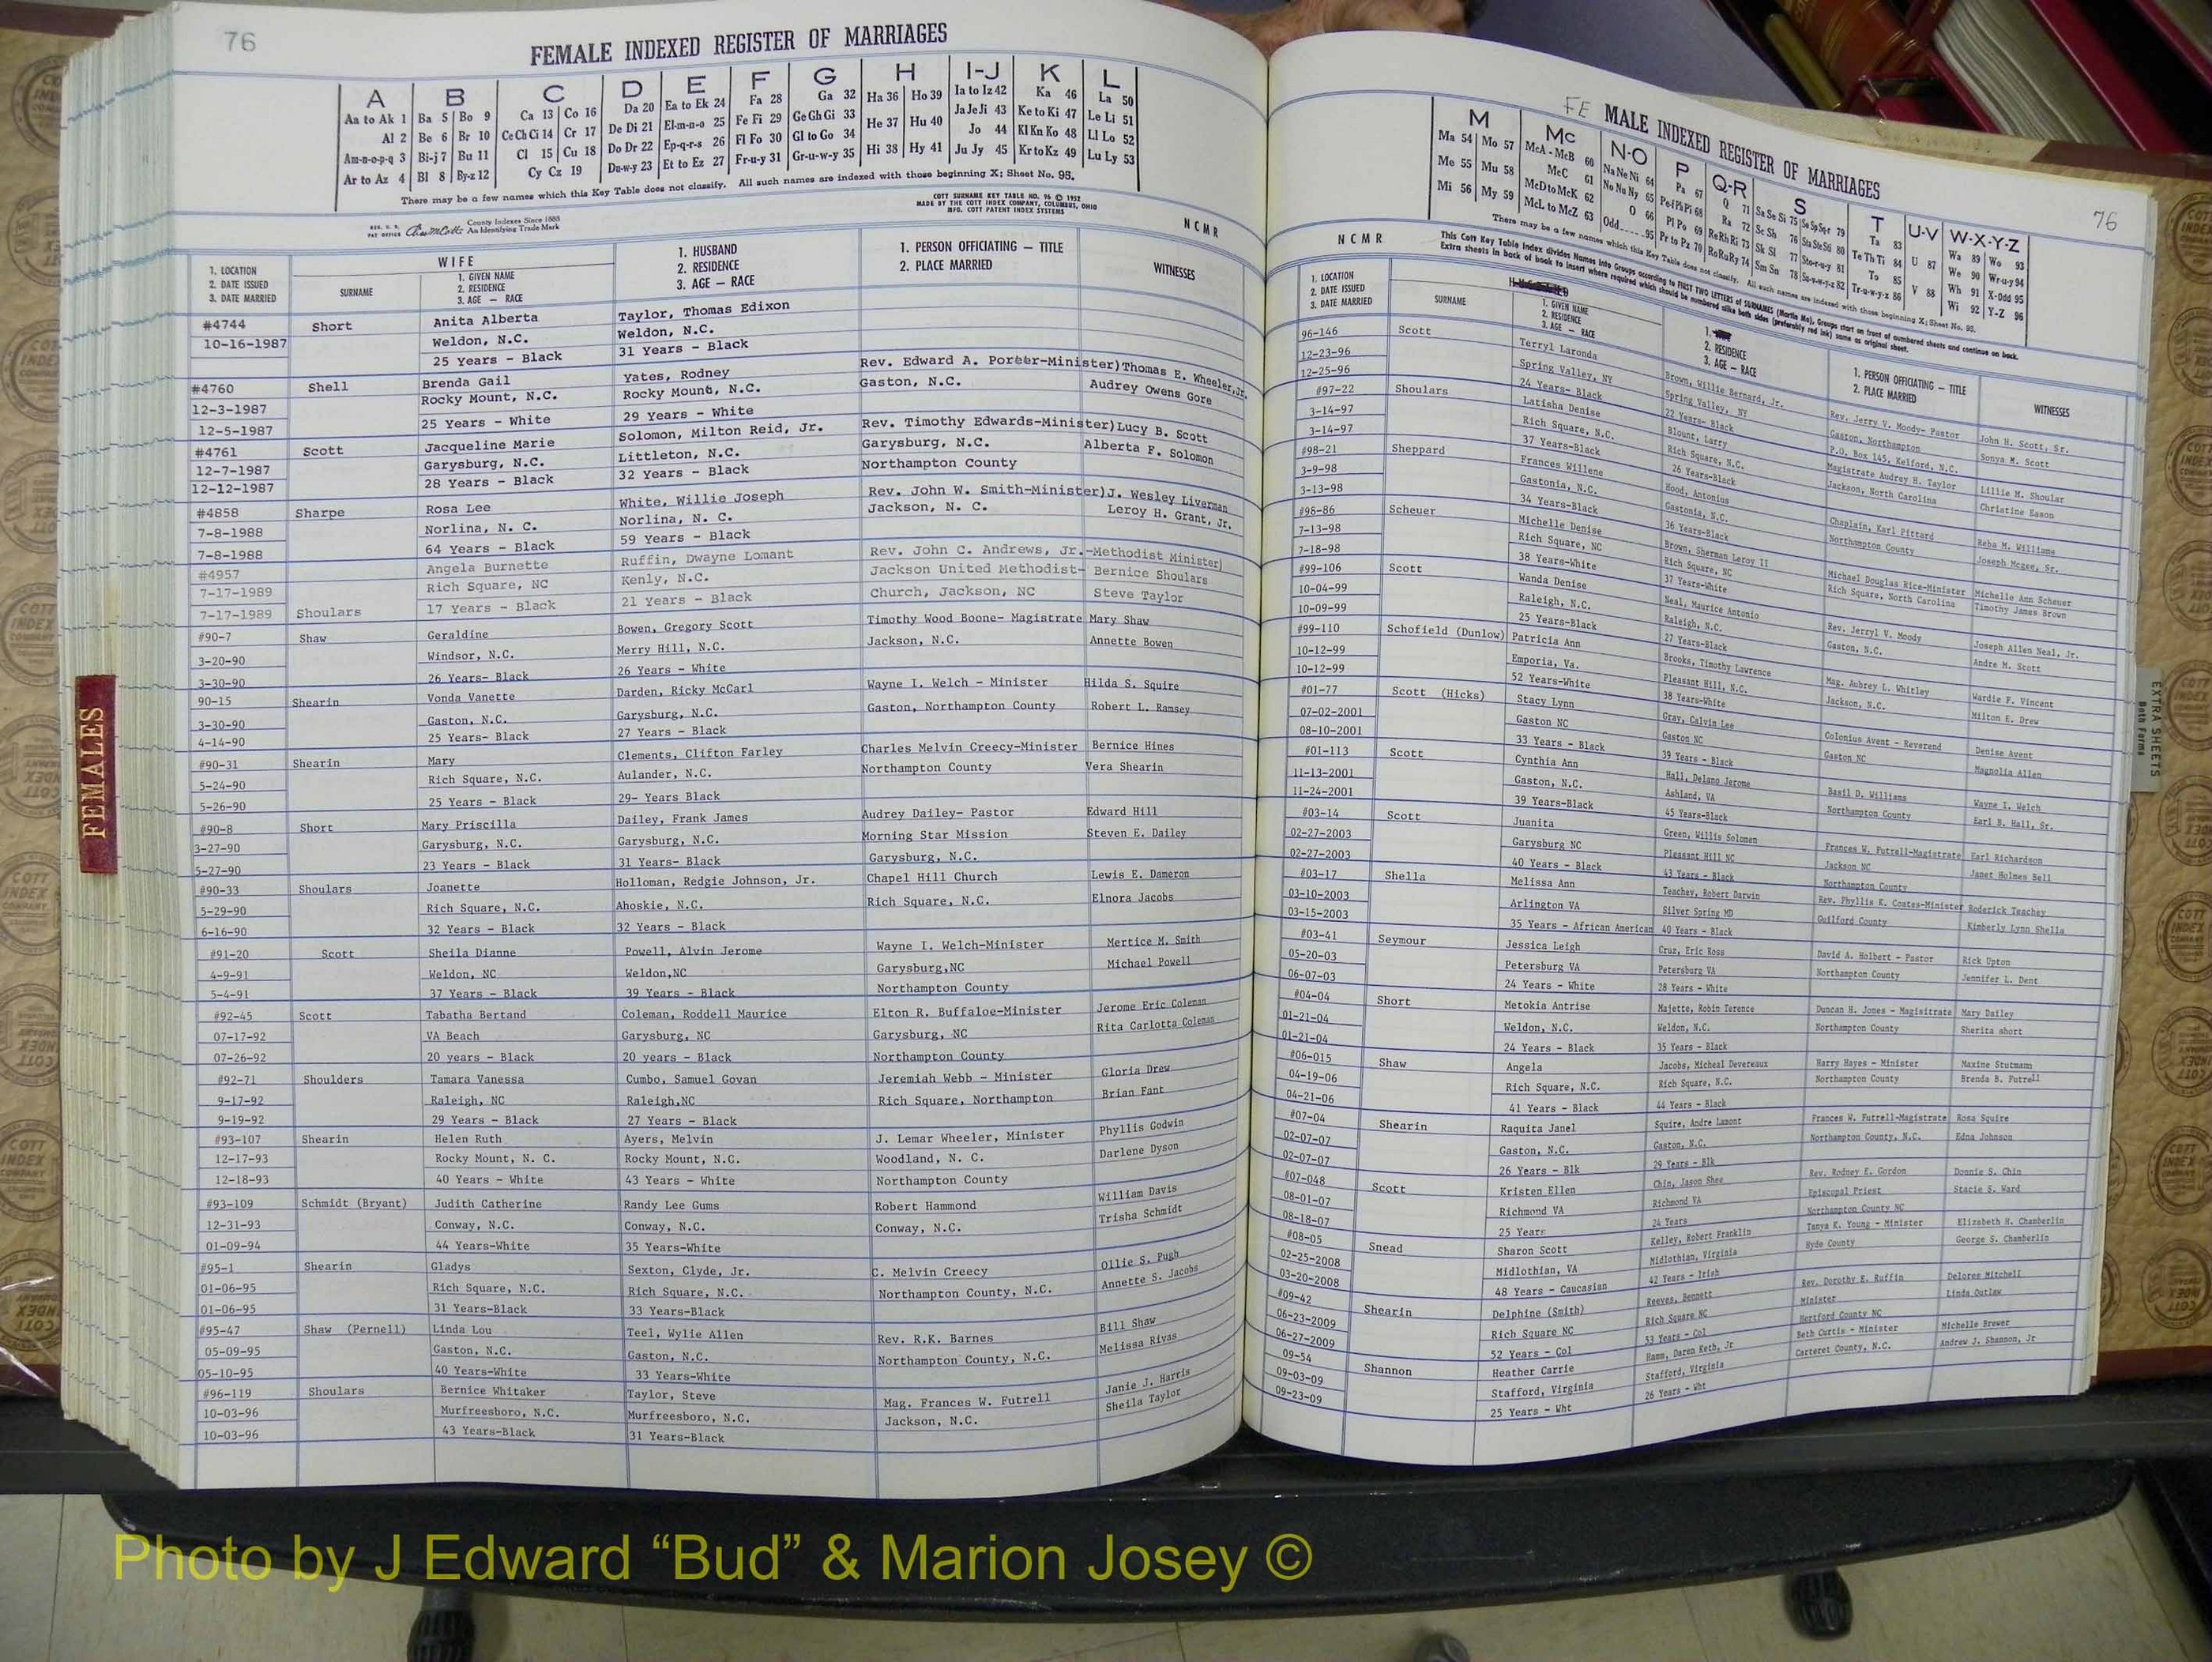 76
FEMALE INDEXED REGISTER OF MARRIAGES
A B C D E F G H I-J K L
Aa to Ak 1 Ba 5 Bo 9 Ca 13 Co 16 Da 20 Ea to Ek 24 Fa 28 Ga 32 Ha 36 Ho 39 Ia to Iz 42 Ka 46 La 50
Al 2 Be 6 Br 10 Ce Ch Ci 14 Cr 17 De Di 21 El-m-n-o 25 Fe Fi 29 Ge Gh Gi 33 He 37 Hu 40 Ja Je Ji 43 Ke to Ki 47 Le Li 51
Am-n-o-p-q 3 Bi-j 7 Bu 11 Cl 15 Cu 18 Do Dr 22 Ep-q-r-s 26 Fl Fo 30 Gl to Go 34 Hi 38 Hy 41 Jo 44 Kl Kn Ko 48 Ll Lo 52
Ar to Az 4 Bl 8 By-z 12 Cy Cz 19 Du-w-y 23 Et to Ez 27 Fr-u-y 31 Gr-u-w-y 35 Ju Jy 45 Kr to Kz 49 Lu Ly 53
There may be a few names which this Key Table does not classify. All such names are indexed with those beginning X; Sheet No. 95.
COTT SURNAME KEY TABLE NO. 96 © 1952
MADE BY THE COTT INDEX COMPANY, COLUMBUS, OHIO
MFG. COTT PATENT INDEX SYSTEMS
County Indexes Since 1888
An Identifying Trade Mark
NCMR
1. LOCATION
2. DATE ISSUED
3. DATE MARRIED
WIFE
SURNAME
1. GIVEN NAME
2. RESIDENCE
3. AGE — RACE
1. HUSBAND
2. RESIDENCE
3. AGE — RACE
1. PERSON OFFICIATING — TITLE
2. PLACE MARRIED
WITNESSES
#4744 Short Anita Alberta Taylor, Thomas Edixon
10-16-1987 Weldon, N.C. Weldon, N.C.
25 Years - Black 31 Years - Black
#4760 Shell Brenda Gail Yates, Rodney Rev. Edward A. Porter-Minister) Thomas E. Wheeler, Jr.
12-3-1987 Rocky Mount, N.C. Rocky Mount, N.C. Gaston, N.C. Audrey Owens Gore
12-5-1987 25 Years - White 29 Years - White
#4761 Scott Jacqueline Marie Solomon, Milton Reid, Jr. Rev. Timothy Edwards-Minister) Lucy B. Scott
12-7-1987 Garysburg, N.C. Littleton, N.C. Garysburg, N.C. Alberta F. Solomon
12-12-1987 28 Years - Black 32 Years - Black Northampton County
#4858 Sharpe Rosa Lee White, Willie Joseph Rev. John W. Smith-Minister) J. Wesley Liverman
7-8-1988 Norlina, N. C. Norlina, N. C. Jackson, N. C. Leroy H. Grant, Jr.
7-8-1988 64 Years - Black 59 Years - Black
#4957 Angela Burnette Ruffin, Dwayne Lomant Rev. John C. Andrews, Jr.-Methodist Minister)
7-17-1989 Rich Square, NC Kenly, N.C. Jackson United Methodist- Bernice Shoulars
7-17-1989 Shoulars 17 Years - Black 21 Years - Black Church, Jackson, NC Steve Taylor
#90-7 Shaw Geraldine Bowen, Gregory Scott Timothy Wood Boone- Magistrate Mary Shaw
3-20-90 Windsor, N.C. Merry Hill, N.C. Jackson, N.C. Annette Bowen
3-30-90 26 Years- Black 26 Years - White
90-15 Shearin Vonda Vanette Darden, Ricky McCarl Wayne I. Welch - Minister Hilda S. Squire
3-30-90 Gaston, N.C. Garysburg, N.C. Gaston, Northampton County Robert L. Ramsey
4-14-90 25 Years- Black 27 Years - Black
#90-31 Shearin Mary Clements, Clifton Farley Charles Melvin Creecy-Minister Bernice Hines
5-24-90 Rich Square, N.C. Aulander, N.C. Northampton County Vera Shearin
5-26-90 25 Years - Black 29- Years Black
#90-8 Short Mary Priscilla Dailey, Frank James Audrey Dailey- Pastor Edward Hill
3-27-90 Garysburg, N.C. Garysburg, N.C. Morning Star Mission Steven E. Dailey
5-27-90 23 Years - Black 31 Years- Black Garysburg, N.C.
#90-33 Shoulars Joanette Holloman, Redgie Johnson, Jr. Chapel Hill Church Lewis E. Dameron
5-29-90 Rich Square, N.C. Ahoskie, N.C. Rich Square, N.C. Elnora Jacobs
6-16-90 32 Years - Black 32 Years - Black
#91-20 Scott Sheila Dianne Powell, Alvin Jerome Wayne I. Welch-Minister Mertice M. Smith
4-9-91 Weldon, NC Weldon,NC Garysburg,NC Michael Powell
5-4-91 37 Years - Black 39 Years - Black Northampton County
#92-45 Scott Tabatha Bertand Coleman, Roddell Maurice Elton R. Buffaloe-Minister Jerome Eric Coleman
07-17-92 VA Beach Garysburg, NC Garysburg, NC Rita Carlotta Coleman
07-26-92 20 years - Black 20 years - Black Northampton County
#92-71 Shoulders Tamara Vanessa Cumbo, Samuel Govan Jeremiah Webb - Minister Gloria Drew
9-17-92 Raleigh, NC Raleigh,NC Rich Square, Northampton Brian Fant
9-19-92 29 Years - Black 27 Years - Black
#93-107 Shearin Helen Ruth Ayers, Melvin J. Lemar Wheeler, Minister Phyllis Godwin
12-17-93 Rocky Mount, N. C. Rocky Mount, N.C. Woodland, N. C. Darlene Dyson
12-18-93 40 Years - White 43 Years - White Northampton County
#93-109 Schmidt (Bryant) Judith Catherine Randy Lee Gums Robert Hammond William Davis
12-31-93 Conway, N.C. Conway, N.C. Conway, N.C. Trisha Schmidt
01-09-94 44 Years-White 35 Years-White
#95-1 Shearin Gladys Sexton, Clyde, Jr. C. Melvin Creecy Ollie S. Pugh
01-06-95 Rich Square, N.C. Rich Square, N.C. Northampton County, N.C. Annette S. Jacobs
01-06-95 31 Years-Black 33 Years-Black
#95-47 Shaw (Pernell) Linda Lou Teel, Wylie Allen Rev. R.K. Barnes Bill Shaw
05-09-95 Gaston, N.C. Gaston, N.C. Northampton County, N.C. Melissa Rivas
05-10-95 40 Years-White 33 Years-White
#96-119 Shoulars Bernice Whitaker Taylor, Steve Mag. Frances W. Futrell Janie J. Harris
10-03-96 Murfreesboro, N.C. Murfreesboro, N.C. Jackson, N.C. Sheila Taylor
10-03-96 43 Years-Black 31 Years-Black
FE MALE INDEXED REGISTER OF MARRIAGES
76
M Mc N-O P Q-R S T U-V W-X-Y-Z
Ma 54 Mo 57 McA - McB 60 Na Ne Ni 64 Pa 67 Q 71 Sa Se Si 75 Sp Sq-r 79 Ta 83 U 87 Wa 89 Wo 93
Me 55 Mu 58 McC 61 No Nu Ny 65 Pe-f Ph Pi 68 Ra 72 Sc Sh 76 Sta Ste Sti 80 Te Th Ti 84 V 88 We 90 Wr-u-y 94
Mi 56 My 59 McD to McK 62 O 66 Pl Po 69 Re Rh Ri 73 Sk Sl 77 Sto-r-u-y 81 To 85 Wh 91 X-Odd 95
McL to McZ 63 Odd 95 Pr to Pz 70 Ro Ru Ry 74 Sm Sn 78 Su-v-w-y-z 82 Tr-u-w-y-z 86 Wi 92 Y-Z 96
There may be a few names which this Key Table does not classify. All such names are indexed with those beginning X; Sheet No. 95.
This Cott Key Table Index divides Names into Groups according to FIRST TWO LETTERS of SURNAMES (Martin Ma). Groups start on front of numbered sheets and continue on back.
Extra sheets in back of book to insert where required which should be numbered alike both sides (preferably red ink) same as original sheet.
NCMR
1. LOCATION
2. DATE ISSUED
3. DATE MARRIED
SURNAME
1. GIVEN NAME
2. RESIDENCE
3. AGE — RACE
1.
2. RESIDENCE
3. AGE — RACE
1. PERSON OFFICIATING — TITLE
2. PLACE MARRIED
WITNESSES
96-146 Scott Terryl Laronda Brown, Willie Bernard, Jr. Rev. Jerry V. Moody- Pastor John H. Scott, Sr.
12-23-96 Spring Valley, NY Spring Valley, NY Gaston, Northampton Sonya M. Scott
12-25-96 24 Years- Black 22 Years- Black P.O. Box 145, Kelford, N.C.
#97-22 Shoulars Latisha Denise Blount, Larry Magistrate Audrey H. Taylor Lillie M. Shoular
3-14-97 Rich Square, N.C. Rich Square, N.C. Jackson, North Carolina Christine Eason
3-14-97 37 Years-Black 26 Years-Black
#98-21 Sheppard Frances Willene Hood, Antonius Chaplain, Karl Pittard Reba M. Williams
3-9-98 Gastonia, N.C. Gastonia, N.C. Northampton County Joseph Mcgee, Sr.
3-13-98 34 Years-Black 36 Years-Black
#98-86 Scheuer Michelle Denise Brown, Sherman Leroy II Michael Douglas Rice-Minister Michelle Ann Scheuer
7-13-98 Rich Square, NC Rich Square, NC Rich Square, North Carolina Timothy James Brown
7-18-98 38 Years-White 37 Years-White
#99-106 Scott Wanda Denise Neal, Maurice Antonio Rev. Jerryl V. Moody Joseph Allen Neal, Jr.
10-04-99 Raleigh, N.C. Raleigh, N.C. Gaston, N.C. Andre M. Scott
10-09-99 25 Years-Black 27 Years-Black
#99-110 Schofield (Dunlow) Patricia Ann Brooks, Timothy Lawrence Mag. Aubrey L. Whitley Wardie F. Vincent
10-12-99 Emporia, Va. Pleasant Hill, N.C. Jackson, N.C. Milton E. Drew
10-12-99 52 Years-White 38 Years-White
#01-77 Scott (Hicks) Stacy Lynn Gray, Calvin Lee Colonius Avent - Reverend Denise Avent
07-02-2001 Gaston NC Gaston NC Gaston NC Magnolia Allen
08-10-2001 33 Years - Black 39 Years - Black
#01-113 Scott Cynthia Ann Hall, Delano Jerome Basil D. Williams Wayne I. Welch
11-13-2001 Gaston, N.C. Ashland, VA Northampton County Earl B. Hall, Sr.
11-24-2001 39 Years-Black 45 Years-Black
#03-14 Scott Juanita Green, Willis Solomen Frances W. Futrell-Magistrate Earl Richardson
02-27-2003 Garysburg NC Pleasant Hill NC Jackson NC Janet Holmes Bell
02-27-2003 40 Years - Black 43 Years - Black Northampton County
#03-17 Shella Melissa Ann Teachey, Robert Darwin Rev. Phyllis K. Coates-Minister Roderick Teachey
03-10-2003 Arlington VA Silver Spring MD Guilford County Kimberly Lynn Shella
03-15-2003 35 Years - African American 40 Years - Black
#03-41 Seymour Jessica Leigh Cruz, Eric Ross David A. Holbert - Pastor Rick Upton
05-20-03 Petersburg VA Petersburg VA Northampton County Jennifer L. Dent
06-07-03 24 Years - White 28 Years - White
#04-04 Short Metokia Antrise Majette, Robin Terence Duncan H. Jones - Magisitrate Mary Dailey
01-21-04 Weldon, N.C. Weldon, N.C. Northampton County Sherita short
01-21-04 24 Years - Black 35 Years - Black
#06-015 Shaw Angela Jacobs, Micheal Devereaux Harry Hayes - Minister Maxine Stutmann
04-19-06 Rich Square, N.C. Rich Square, N.C. Northampton County Brenda B. Futrell
04-21-06 41 Years - Black 44 Years - Black
#07-04 Shearin Raquita Janel Squire, Andre Lamont Frances W. Futrell-Magistrate Rosa Squire
02-07-07 Gaston, N.C. Gaston, N.C. Northampton County, N.C. Edna Johnson
02-07-07 26 Years - Blk 29 Years - Blk
#07-048 Scott Kristen Ellen Chin, Jason Shee Rev. Rodney E. Gordon Donnie S. Chin
08-01-07 Richmond VA Richmond VA Episcopal Priest Stacie S. Ward
08-18-07 25 Years 24 Years Northampton County NC
#08-05 Snead Sharon Scott Kelley, Robert Franklin Tanya K. Young - Minister Elizabeth H. Chamberlin
02-25-2008 Midlothian, VA Midlothian, Virginia Hyde County George S. Chamberlin
03-20-2008 48 Years - Caucasian 42 Years - Irish
#09-42 Shearin Delphine (Smith) Reeves, Bennett Rev. Dorothy E. Ruffin Delores Mitchell
06-23-2009 Rich Square NC Rich Square NC Minister Linda Outlaw
06-27-2009 52 Years - Col 53 Years - Col Hertford County NC
09-54 Shannon Heather Carrie Hamm, Daren Keth, Jr Beth Curtis - Minister Michelle Brewer
09-03-09 Stafford, Virginia Stafford, Virginia Carteret County, N.C. Andrew J. Shannon, Jr
09-23-09 25 Years - Wht 26 Years - Wht
FEMALES
EXTRA SHEETS
Both Forms
COTT INDEX COMPANY
Photo by J Edward “Bud” & Marion Josey ©